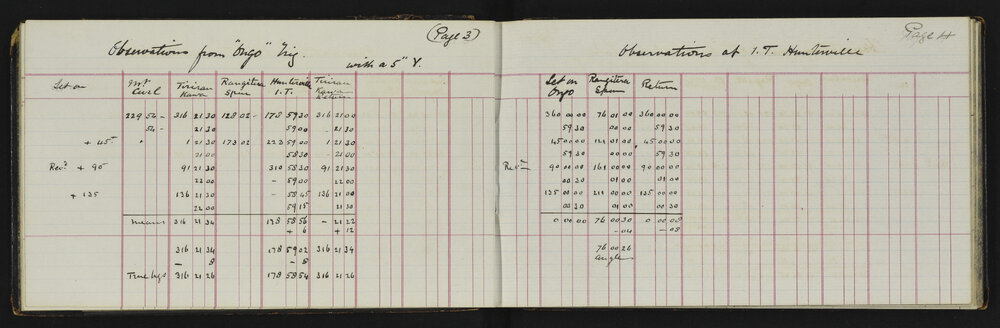 (Page 3)
Observations from "Ongo" Trig.
with a 5" Y.
Set on Mt Curl Tiriraukawa Rangitira Spur Hunterville I.T. Tiriraukawa Return
229 54 - 316 21 30 128 02 - 178 59 30 316 21 00
54 - 21 30 59 00 - 21 30
+ 45° " 1 21 30 173 02 223 59 00 1 21 30
21 00 58 30 - 21 00
Rev? + 90 91 21 30 310 58 30 91 21 30
22 00 - 59 00 22 00
+ 135 136 21 30 - 58 45 136 21 00
22 00 59 15 21 30
means 316 21 34 178 58 56 - 21 22
+ 6 + 12
316 21 34 178 59 02 316 21 34
- 8 - 8
True bgs 316 21 26 178 58 54 316 21 26
Page 4
Observations at I.T. Hunterville
Set on Ongo Rangitira Spur Return
360 00 00 76 01 00 360 00 00
59 30 00 00 59 30
45 00 00 121 01 00 45 00 00
59 30 00 00 59 30
Rev? 90 00 00 161 00 00 90 00 00
00 30 01 00 01 00
135 00 00 211 00 00 135 00 00
00 30 01 00 00 30
0 00 00 76 00 30 0 00 08
- 04 - 08
76 00 26
Angle